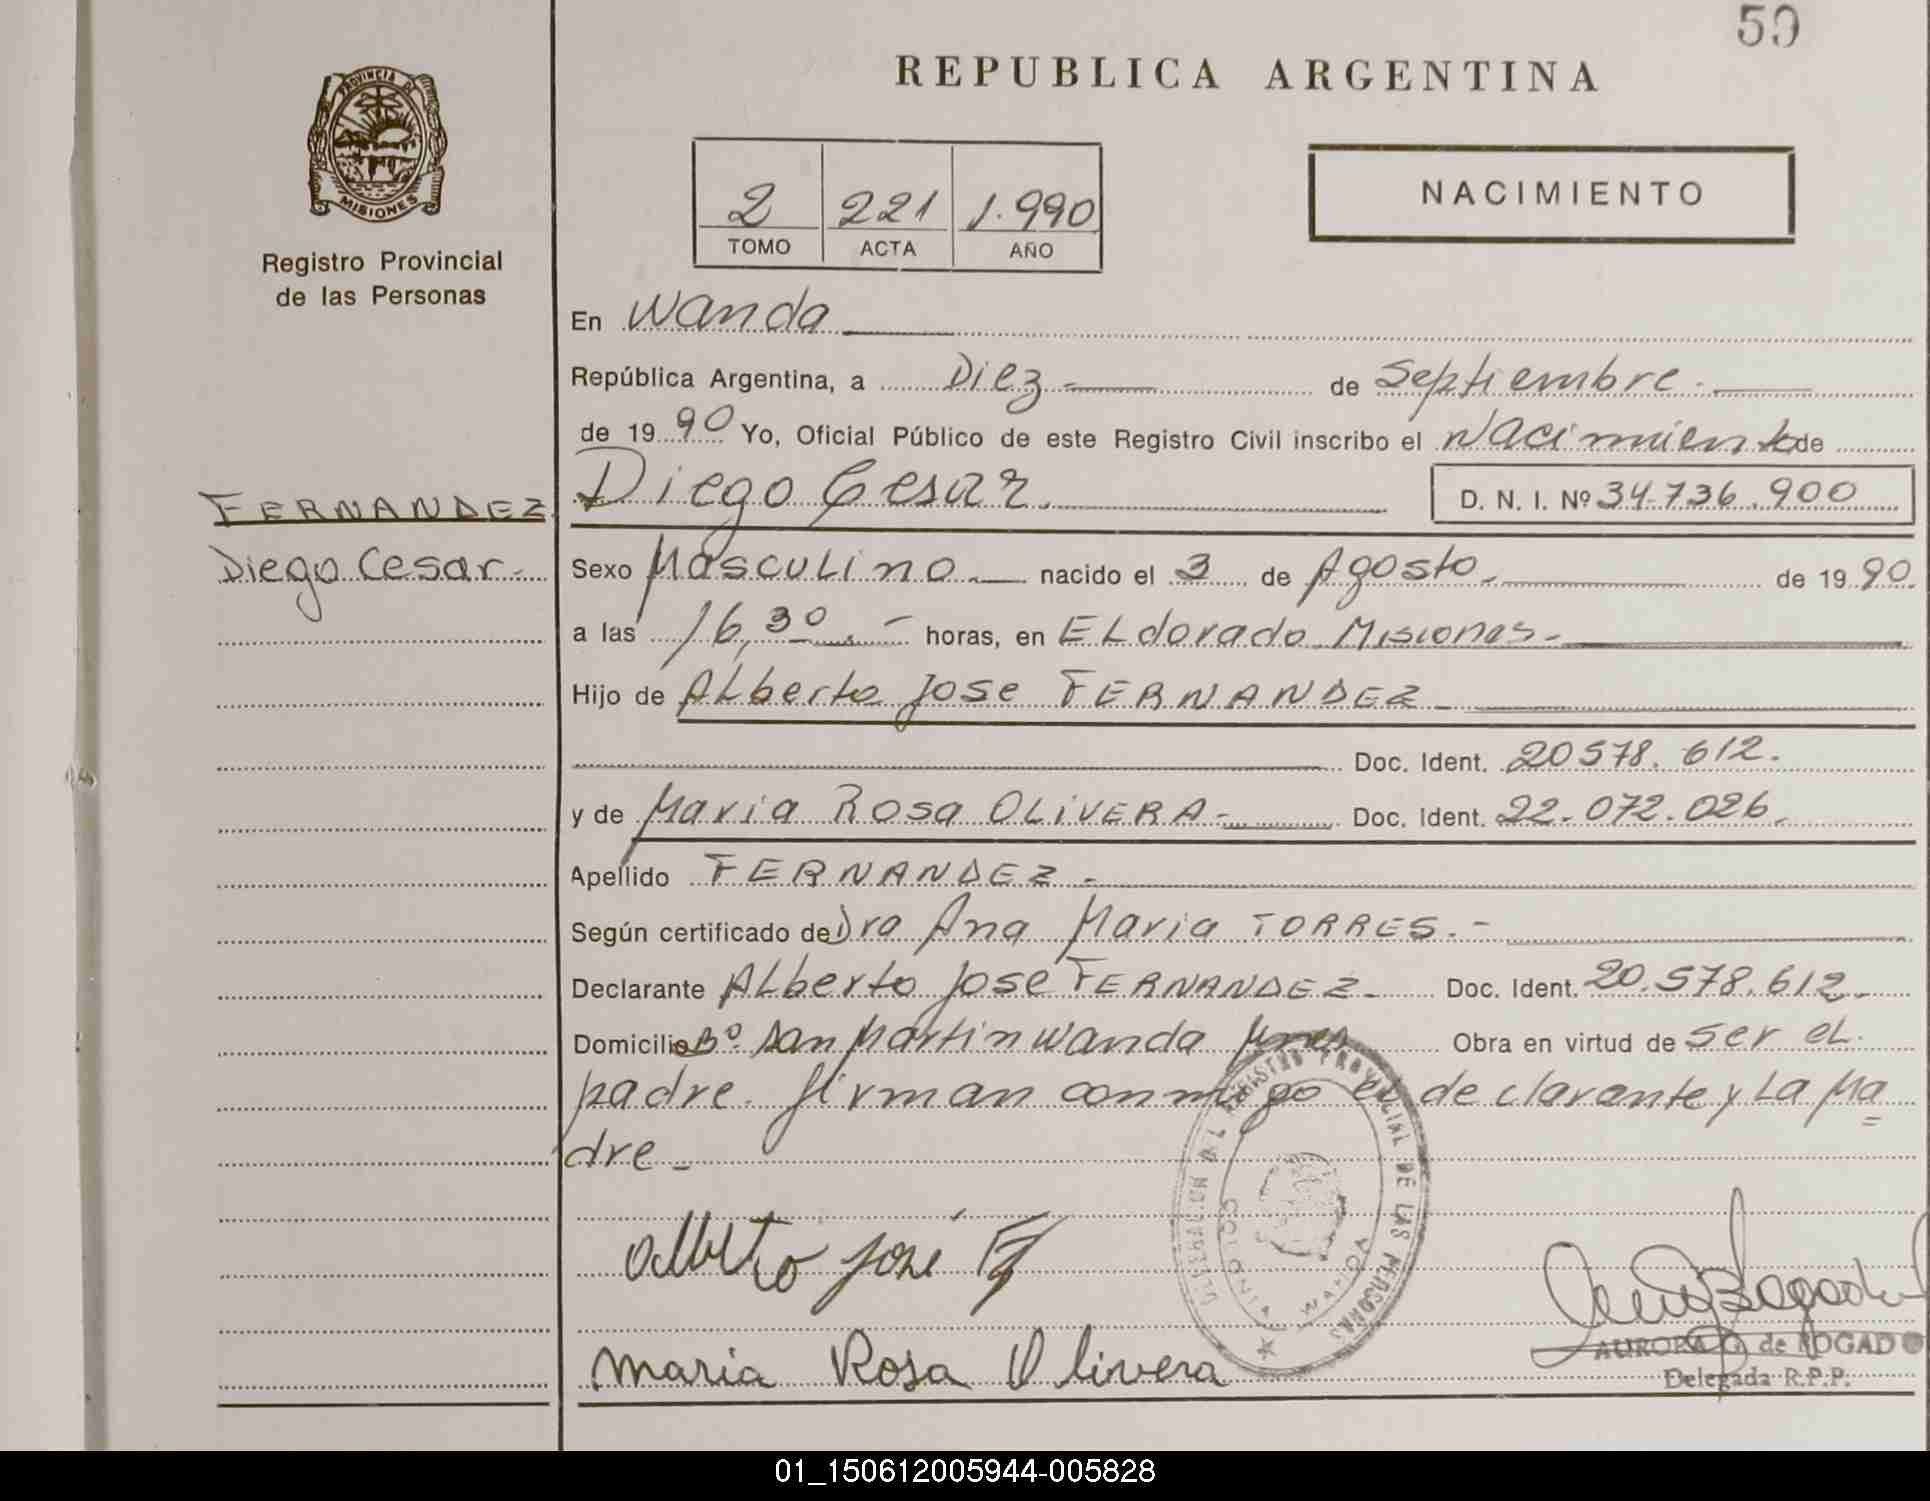 59
REPUBLICA ARGENTINA
PROVINCIA DE
MISIONES
Registro Provincial
de las Personas
2 221 1.990
TOMO ACTA AÑO
NACIMIENTO
En Wanda
República Argentina, a Diez - de Septiembre.
de 1990 Yo, Oficial Público de este Registro Civil inscribo el Nacimiento de
Diego Cesar.
D. N. I. Nº 34.736.900
FERNANDEZ
Diego Cesar-
Sexo Masculino. nacido el 3 de Agosto. de 1990.
a las 16,30. - horas, en ELdorado Misiones-
Hijo de ALberto Jose FERNANDEZ -
Doc. Ident. 20578.612.
y de Maria Rosa OLIVERA - Doc. Ident. 22.072.026.
Apellido FERNANDEZ -
Según certificado de Dra Ana Maria TORRES. -
Declarante ALberto Jose FERNANDEZ - Doc. Ident. 20.578.612.
Domicilio Bº. San Martin Wanda Mnes Obra en virtud de ser eL
padre. firman conmigo el declarante y La Ma
dre -
DELEGACION DEL REGISTRO PROVINCIAL DE LAS PERSONAS
WANDA
Alberto José F
Maria Rosa Olivera
AURORA G. de ROGADO
Delegada R.P.P.
01_150612005944-005828